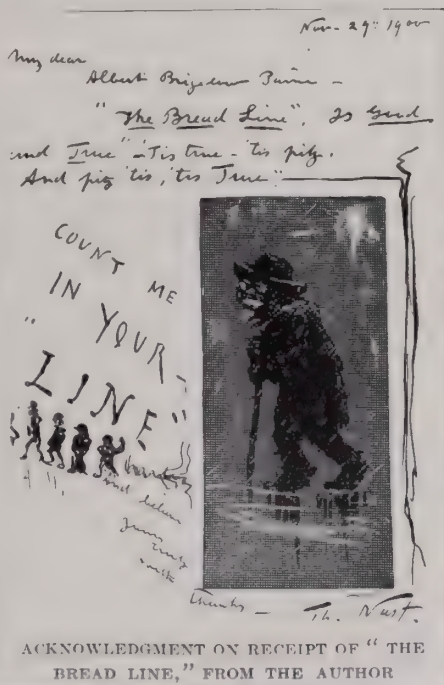 Nov. 29th 1900
My dear
Albert Bigelow Paine –
"The Bread Line", Is Good
and True" 'Tis true - 'tis pity.
And pity 'tis, 'tis True"
COUNT ME
IN YOUR
"LINE"
and believe
yours truly
Thanks – Th. Nast.
ACKNOWLEDGMENT ON RECEIPT OF "THE
BREAD LINE," FROM THE AUTHOR